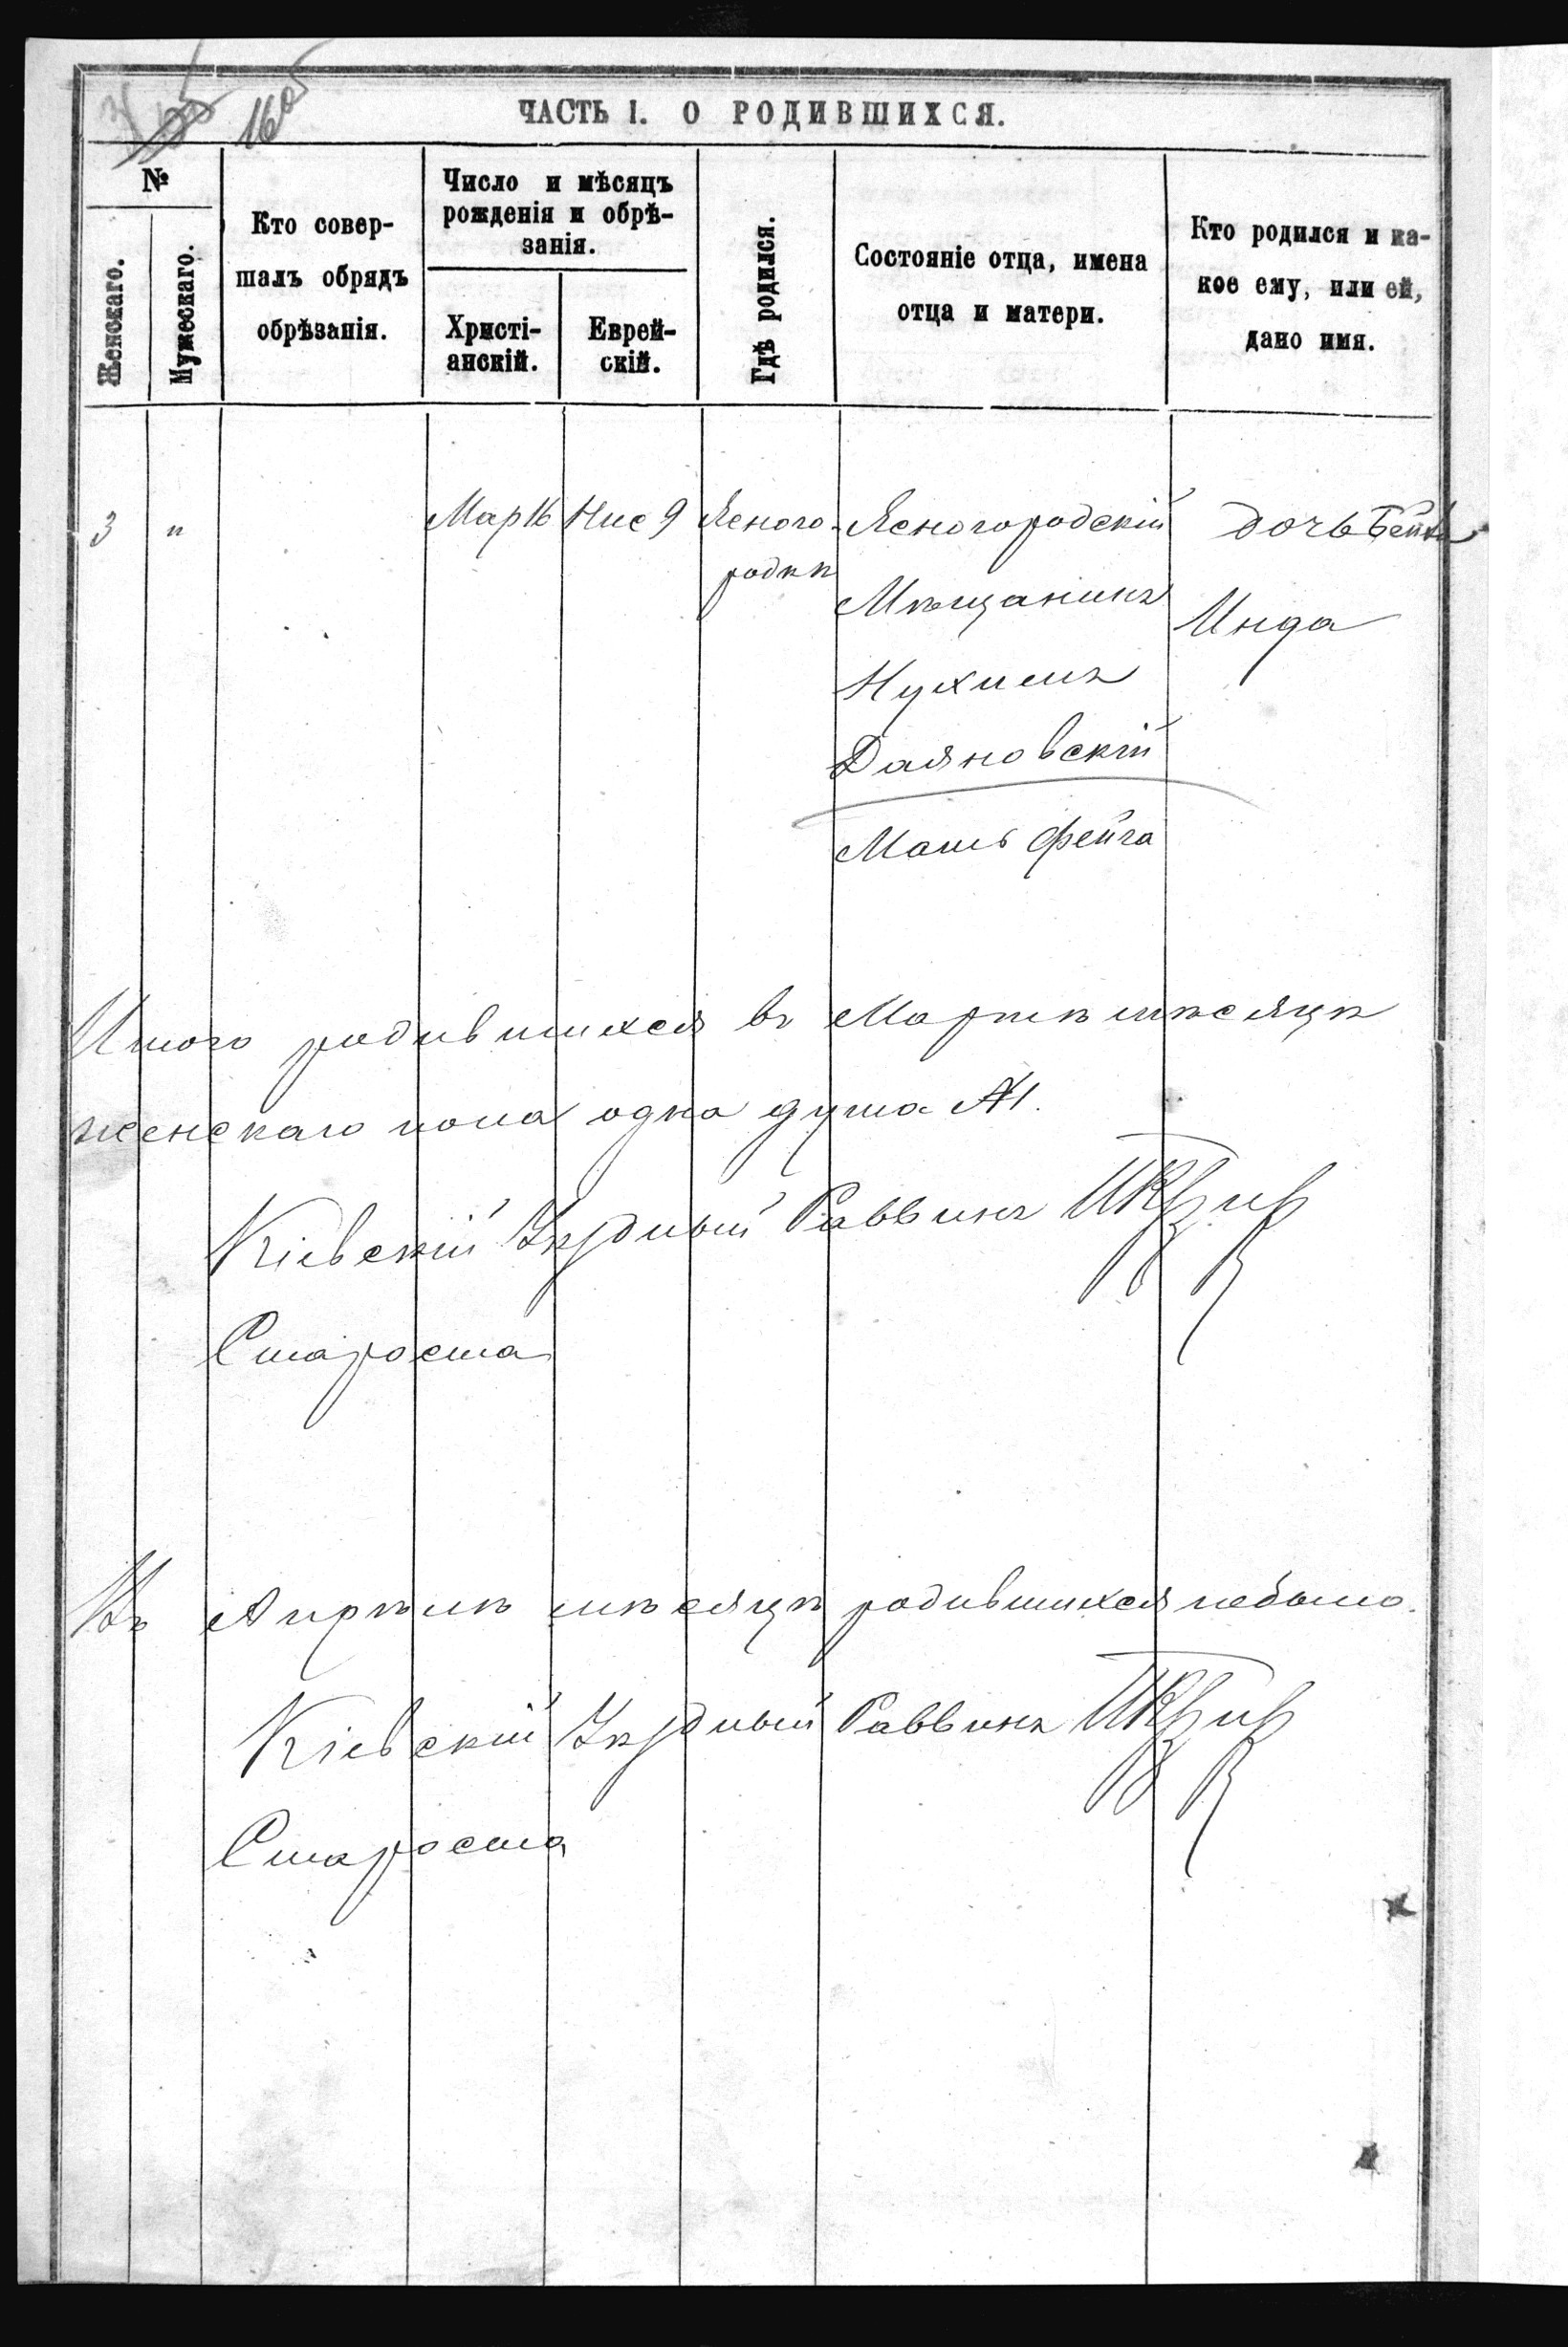 160б
ЧАСТЬ I. О РОДИВШИХСЯ.
№
Женскаго.
Мужескаго.
Кто совер-
шалъ обрядъ
обрѣзанія.
Число и мѣсяцъ
рожденія и обрѣ-
занія.
Христі-
анскій.
Еврей-
скій.
Гдѣ родился.
Состояніе отца, имена
отца и матери.
Кто родился и ка-
кое ему, или ей,
дано имя.
3 " Мар 16 Нис 9 Ясного- Ясногородскій дочь Бейла
родкѣ
Мѣщанинъ
Инда
Нухимъ
Даяновскій
Мать Фейга
Итого родившихся въ Мартѣ мѣсяцѣ
женскаго пола одна душа №1.
Кіевскій Уѣздный Раввинъ
Староста
Въ Апрѣлѣ мѣсяцѣ родившихся небыло.
Кіевскій Уѣздный Раввинъ
Староста